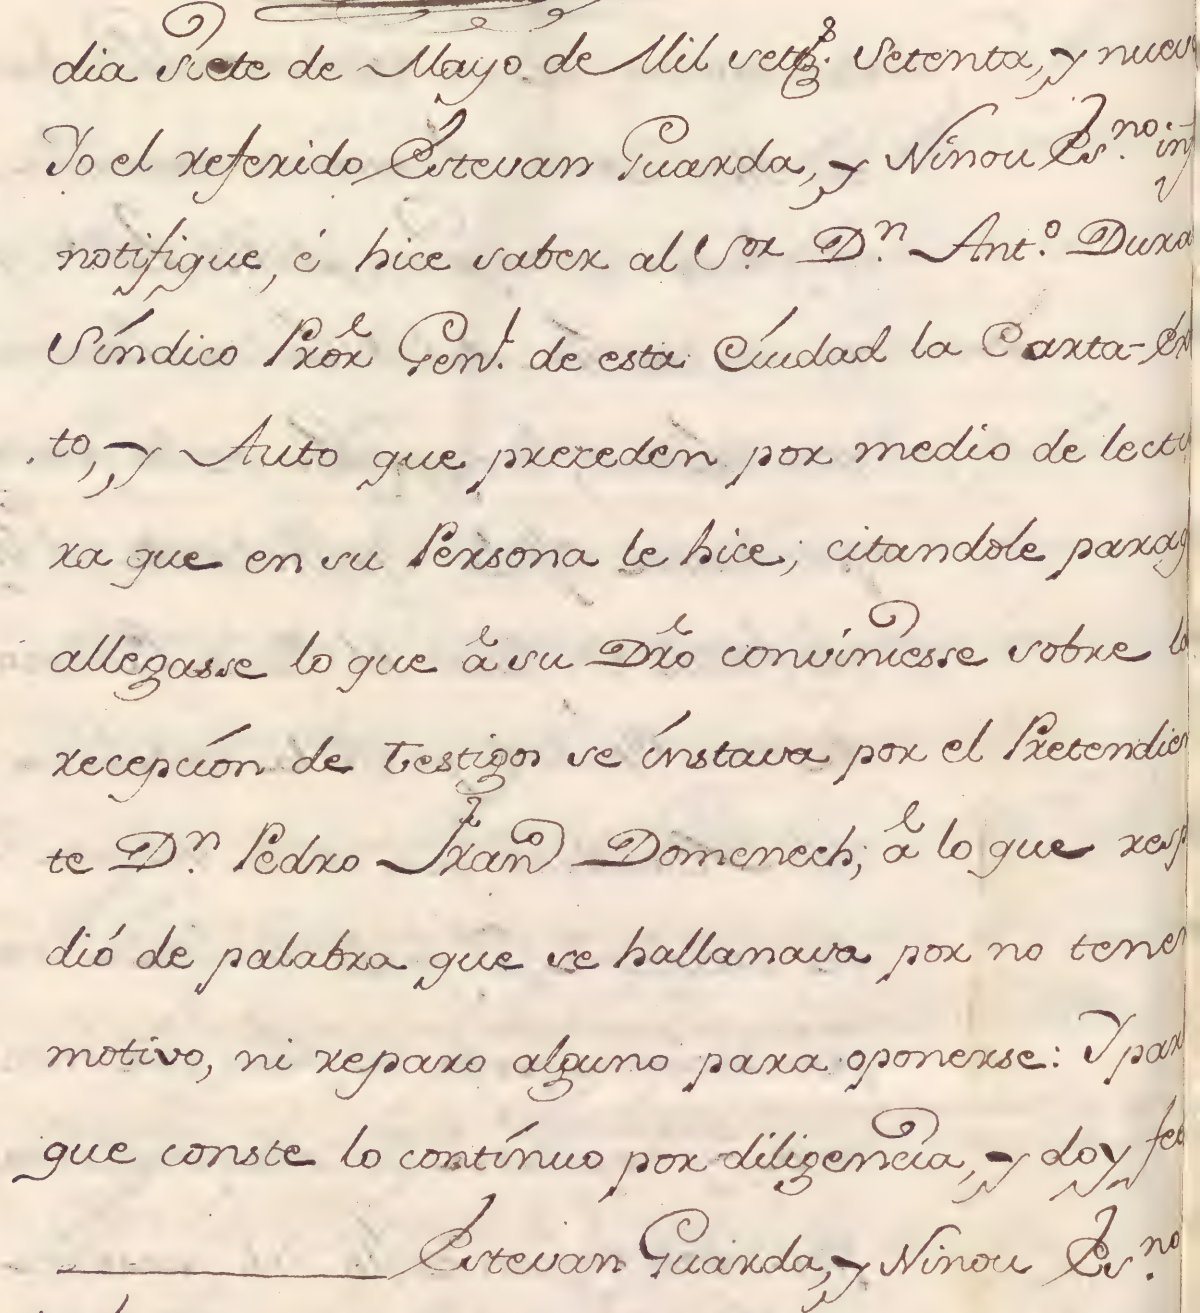 dia siete de Mayo de Mil sett.s Setenta, y nueve
Yo el referido Estevan Guarda, y Ninou Es.no inf
notifique, é hice saber al S.or D.n Ant.o Dura
Síndico Pror Gen.l de esta Ciudad la Carta-Ex
to, y Auto que preceden por medio de lectu
ra que en su Persona le hice; citandole para q
allegasse lo que â su Dro conviniesse sobre la
recepción de Testigos se ínstava por el Pretendien
te D.n Pedro Fran.co Domenech; â lo que resp
dió de palabra que se hallanava por no tener
motivo, ni reparo alguno para oponerse: Y par
que conste lo contínuo por diligencia, y doy fee
Estevan Guarda, y Ninou Es.no